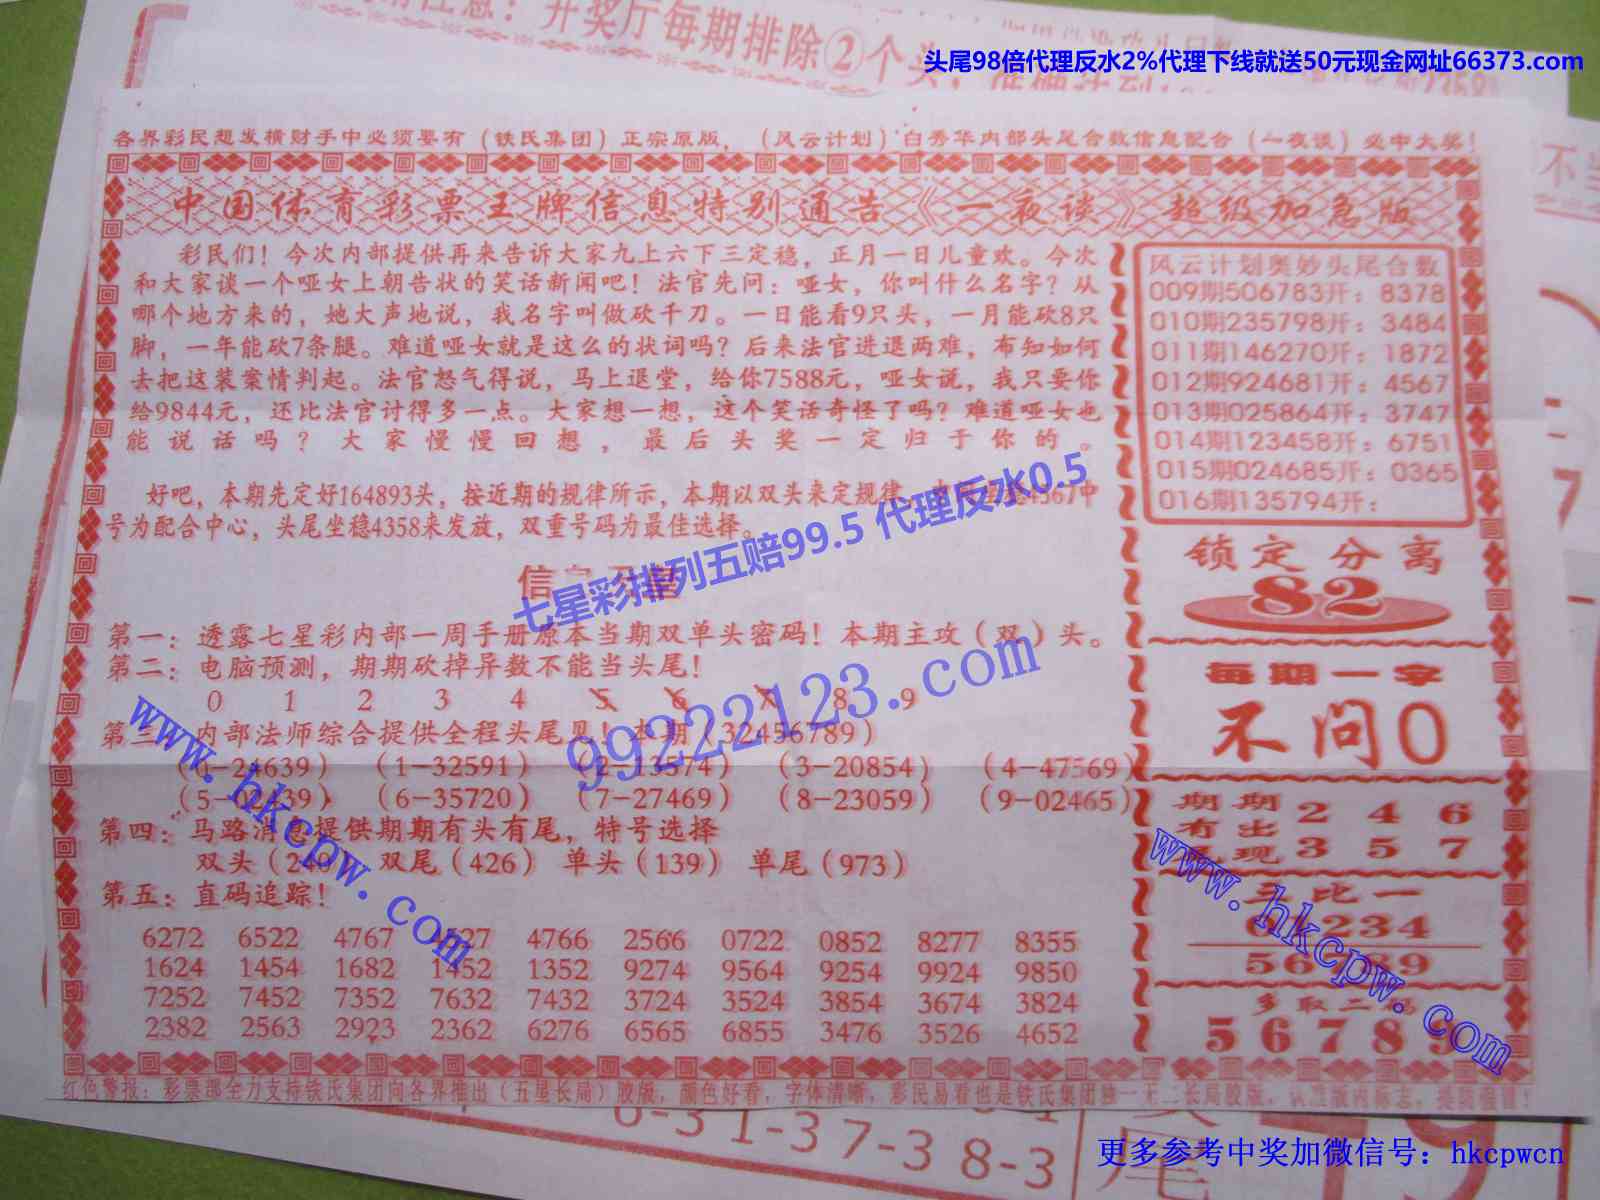 开奖厅每期排除②个头
头尾98倍代理反水2%代理下线就送50元现金网址66373.com
各界彩民想发横财手中必须要有（铁氏集团）正宗原版，（风云计划）白秀华内部头尾合数信息配合（一夜谈）必中大奖！
中国体育彩票王牌信息特别通告《一夜谈》超级加急版
彩民们！今次内部提供再来告诉大家九上六下三定稳，正月一日儿童欢。今次
和大家谈一个哑女上朝告状的笑话新闻吧！法官先问：哑女，你叫什么名字？从
哪个地方来的，她大声地说，我名字叫做砍千刀。一日能看9只头，一月能砍8只
脚，一年能砍7条腿。难道哑女就是这么的状词吗？后来法官进退两难，布知如何
去把这装案情判起。法官怒气得说，马上退堂，给你7588元，哑女说，我只要你
给9844元，还比法官讨得多一点。大家想一想，这个笑话奇怪了吗？难道哑女也
能说话吗？大家慢慢回想，最后头奖一定归于你的。
好吧，本期先定好164893头，按近期的规律所示，本期以双头来定规律，
号为配合中心，头尾坐稳4358来发放，双重号码为最佳选择。
七星彩排列五赔99.5 代理反水0.5
第一：透露七星彩内部一周手册原本当期双单头密码！本期主攻（双）头。
第二：电脑预测，期期砍掉异数不能当头尾！
0 1 2 3 4 5 6 7 8 9
第三：内部法师综合提供全程头尾见！本期（32456789）
99222123.com
（1-32591） （2-13574） （3-20854） （4-47569）
（6-35720） （7-27469） （8-23059） （9-02465）
www.hkcpw.com
第四：马路消息提供期期有头有尾，特号选择
双头（246） 双尾（426） 单头（139） 单尾（973）
第五：直码追踪！
6272 6522 4767 4627 4766 2566 0722 0852 8277 8355
1624 1454 1682 1452 1352 9274 9564 9254 9924 9850
7252 7452 7352 7632 7432 3724 3524 3854 3674 3824
2382 2563 2923 2362 6276 6565 6855 3476 3526 4652
风云计划奥妙头尾合数
009期506783开：8378
010期235798开：3484
011期146270开：1872
012期924681开：4567
013期025864开：3747
014期123458开：6751
015期024685开：0365
016期135794开：
锁定分离
82
每期一字
不问0
期期 2 4 6
有出
现 3 5 7
www.hkcpw.com
比一
234
多取二
5 6 7 8 9
红色警报：彩票部全力支持铁氏集团向各界推出（五星长局）胶版，颜色好看，字体清晰，彩民易看也是铁氏集团独一无二长局胶版，认准版内标志，提防假冒！
6-3 1-3 7-3 8-3
尾
更多参考中奖加微信号：hkcpwcn